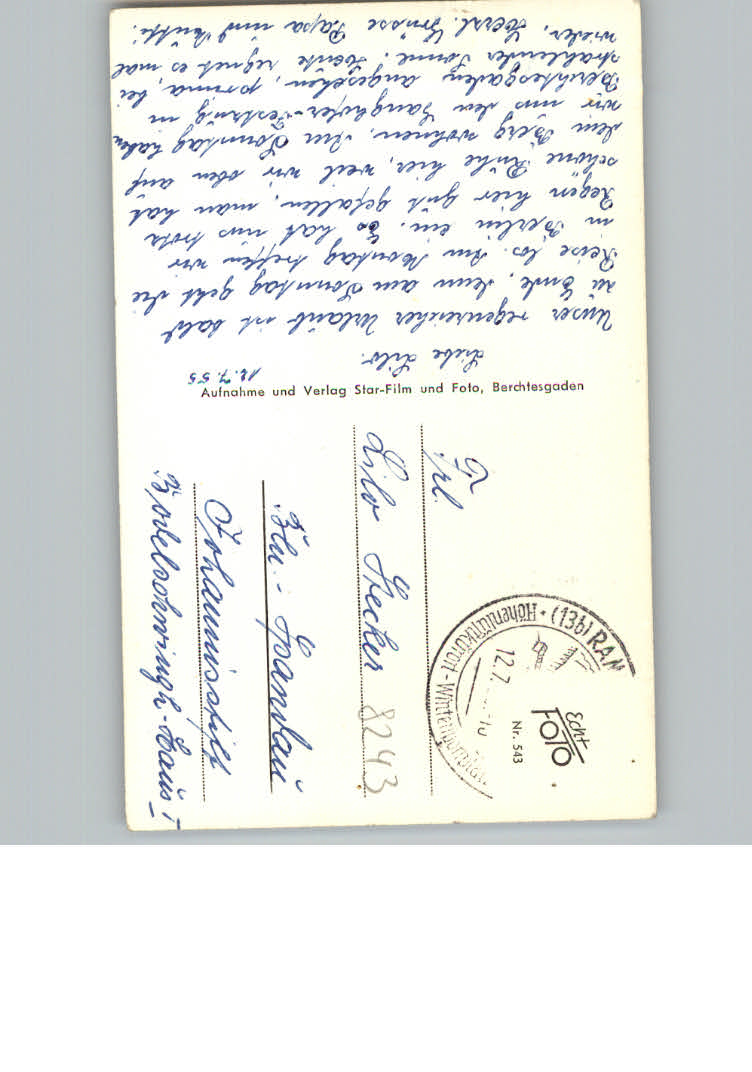 12.7.55
Liebe Lilo.
Unser regenreicher Urlaub ist bald
zu Ende, denn am Sonntag geht die
Reise los. Am Montag treffen wir
in Berlin ein. Es hat uns trotz
Regen hier gut gefallen, man hat
schöne Ruhe hier, weil wir oben auf
dem Berg wohnen. Am Sonntag haben
wir uns den Ganghofer-Festzug in
Berchtesgaden angesehen, prima, bei
strahlender Sonne. Heute regnet es mal
wieder. Herzl. Grüsse Papa und Mutti.
Aufnahme und Verlag Star-Film und Foto, Berchtesgaden
Frl.
Lilo Hecker
Bln.-Spandau
Johannisstift
Bodelschwingh-Haus I
8243
(13b) RAM
Höhenluftkurort - Wintersportplatz
12.7
Echt
FOTO
Nr. 543